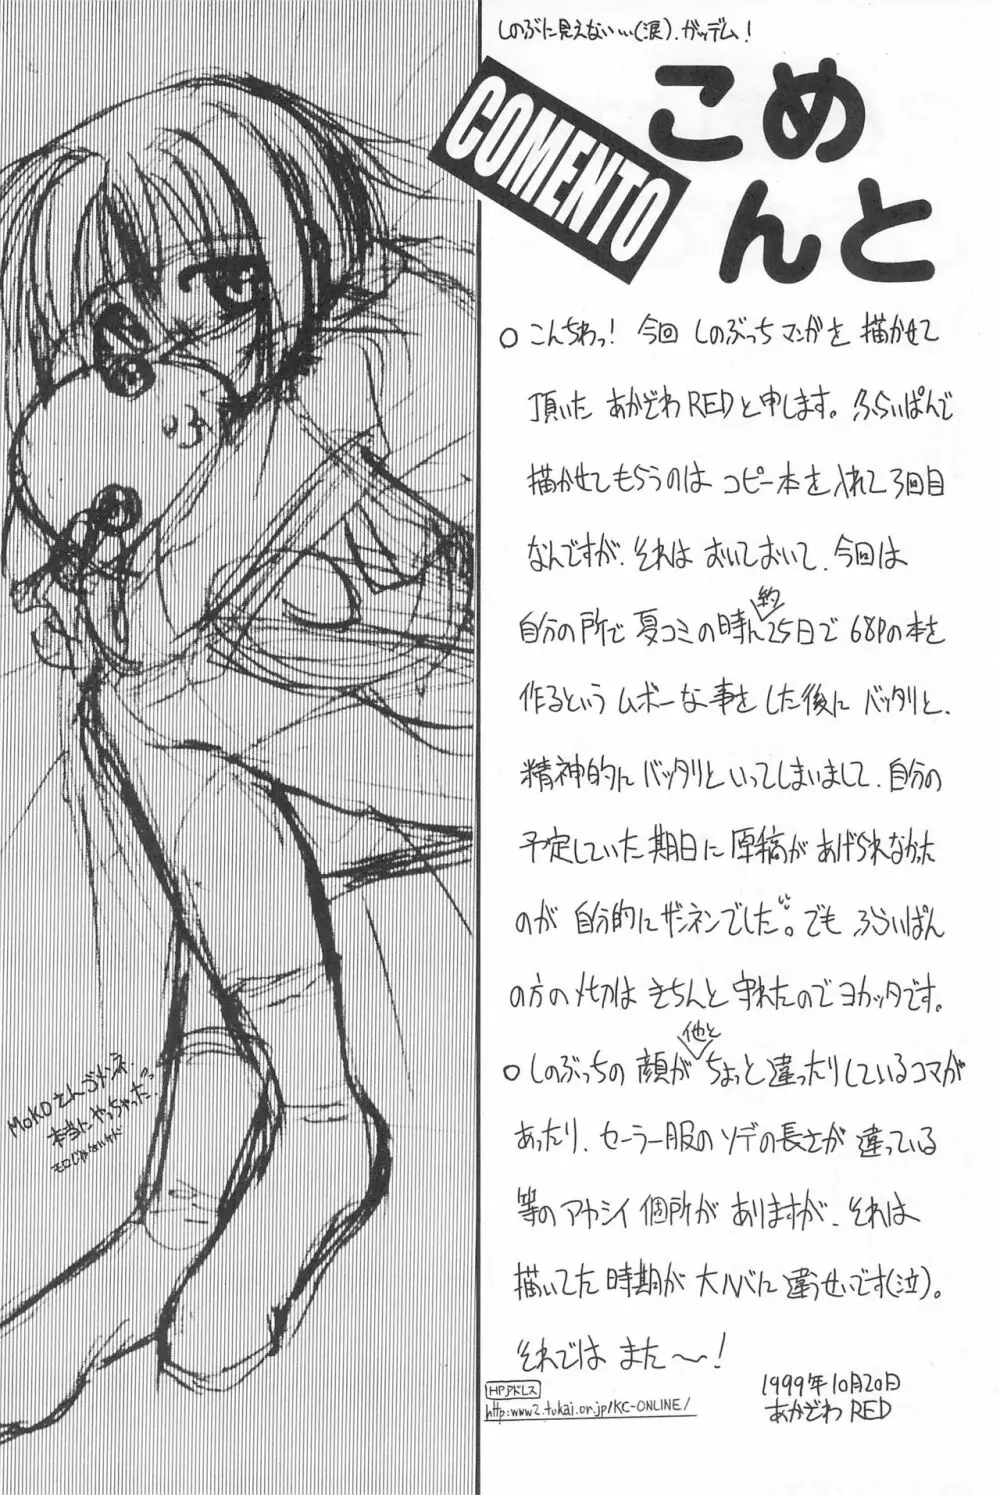 しのぶに見えない…(涙).ガッデム!
こめ
んと
COMENTO
○こんちわっ!今回 しのぶっちマンガを 描かせて
頂いた あかざわREDと申します。ふらいぱんで
描かせてもらうのは コピー本を入れて3回目
なんですが、それは おいておいて、今回は
自分の所で 夏コミの時に約25日で 68Pの本を
作るという ムボーな事を した後に バッタリと、
精神的に バッタリと いってしまいまして、自分の
予定していた期日に 原稿が あげられなかった
のが 自分的に ザンネンでした。でも ふらいぱん
の方の〆切は きちんと 守れたので ヨカッタです。
○しのぶっちの 顔が他とちょっと違ったりしているコマが
あったり、セーラー服の ソデの長さが 違っている
等の アヤシイ 個所が ありますが、それは
描いてた 時期が 大ハバに 違うせいです(泣)。
それでは また〜!
1999年10月20日
あかざわ RED
HPアドレス
http:www2.tukai.or.jp/KC-ONLINE/
MOKOさんゴメンネ.
本当にやっちゃった.
モロじゃないケド